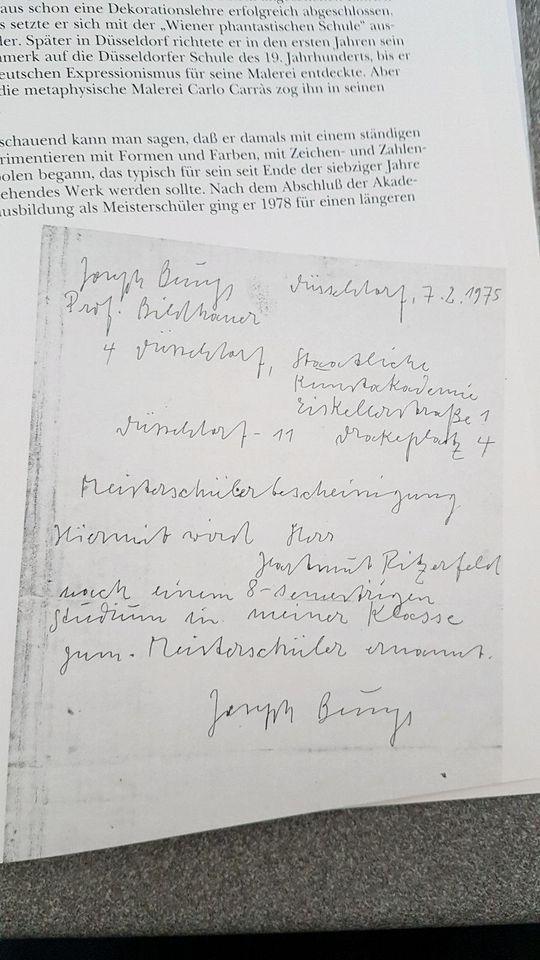 aus schon eine Dekorationslehre erfolgreich abgeschlossen,
s setzte er sich mit der „Wiener phantastischen Schule" aus-
der. Später in Düsseldorf richtete er in den ersten Jahren sein
nmerk auf die Düsseldorfer Schule des 19. Jahrhunderts, bis er
eutschen Expressionismus für seine Malerei entdeckte. Aber
die metaphysische Malerei Carlo Carràs zog ihn in seinen
schauend kann man sagen, daß er damals mit einem ständigen
rimentieren mit Formen und Farben, mit Zeichen- und Zahlen-
olen begann, das typisch für sein seit Ende der siebziger Jahre
ehendes Werk werden sollte. Nach dem Abschluß der Akade-
ausbildung als Meisterschüler ging er 1978 für einen längeren
Joseph Beuys Düsseldorf, 7.2.1975
Prof. Bildhauer
4 Düsseldorf, Staatliche
Kunstakademie
Eiskellerstraße 1
Düsseldorf - 11 Drakeplatz 4
Meisterschülerbescheinigung
Hiermit wird Herr
Hartmut Ritzerfeld
nach einem 8-semestrigen
Studium in meiner Klasse
zum Meisterschüler ernannt.
Joseph Beuys